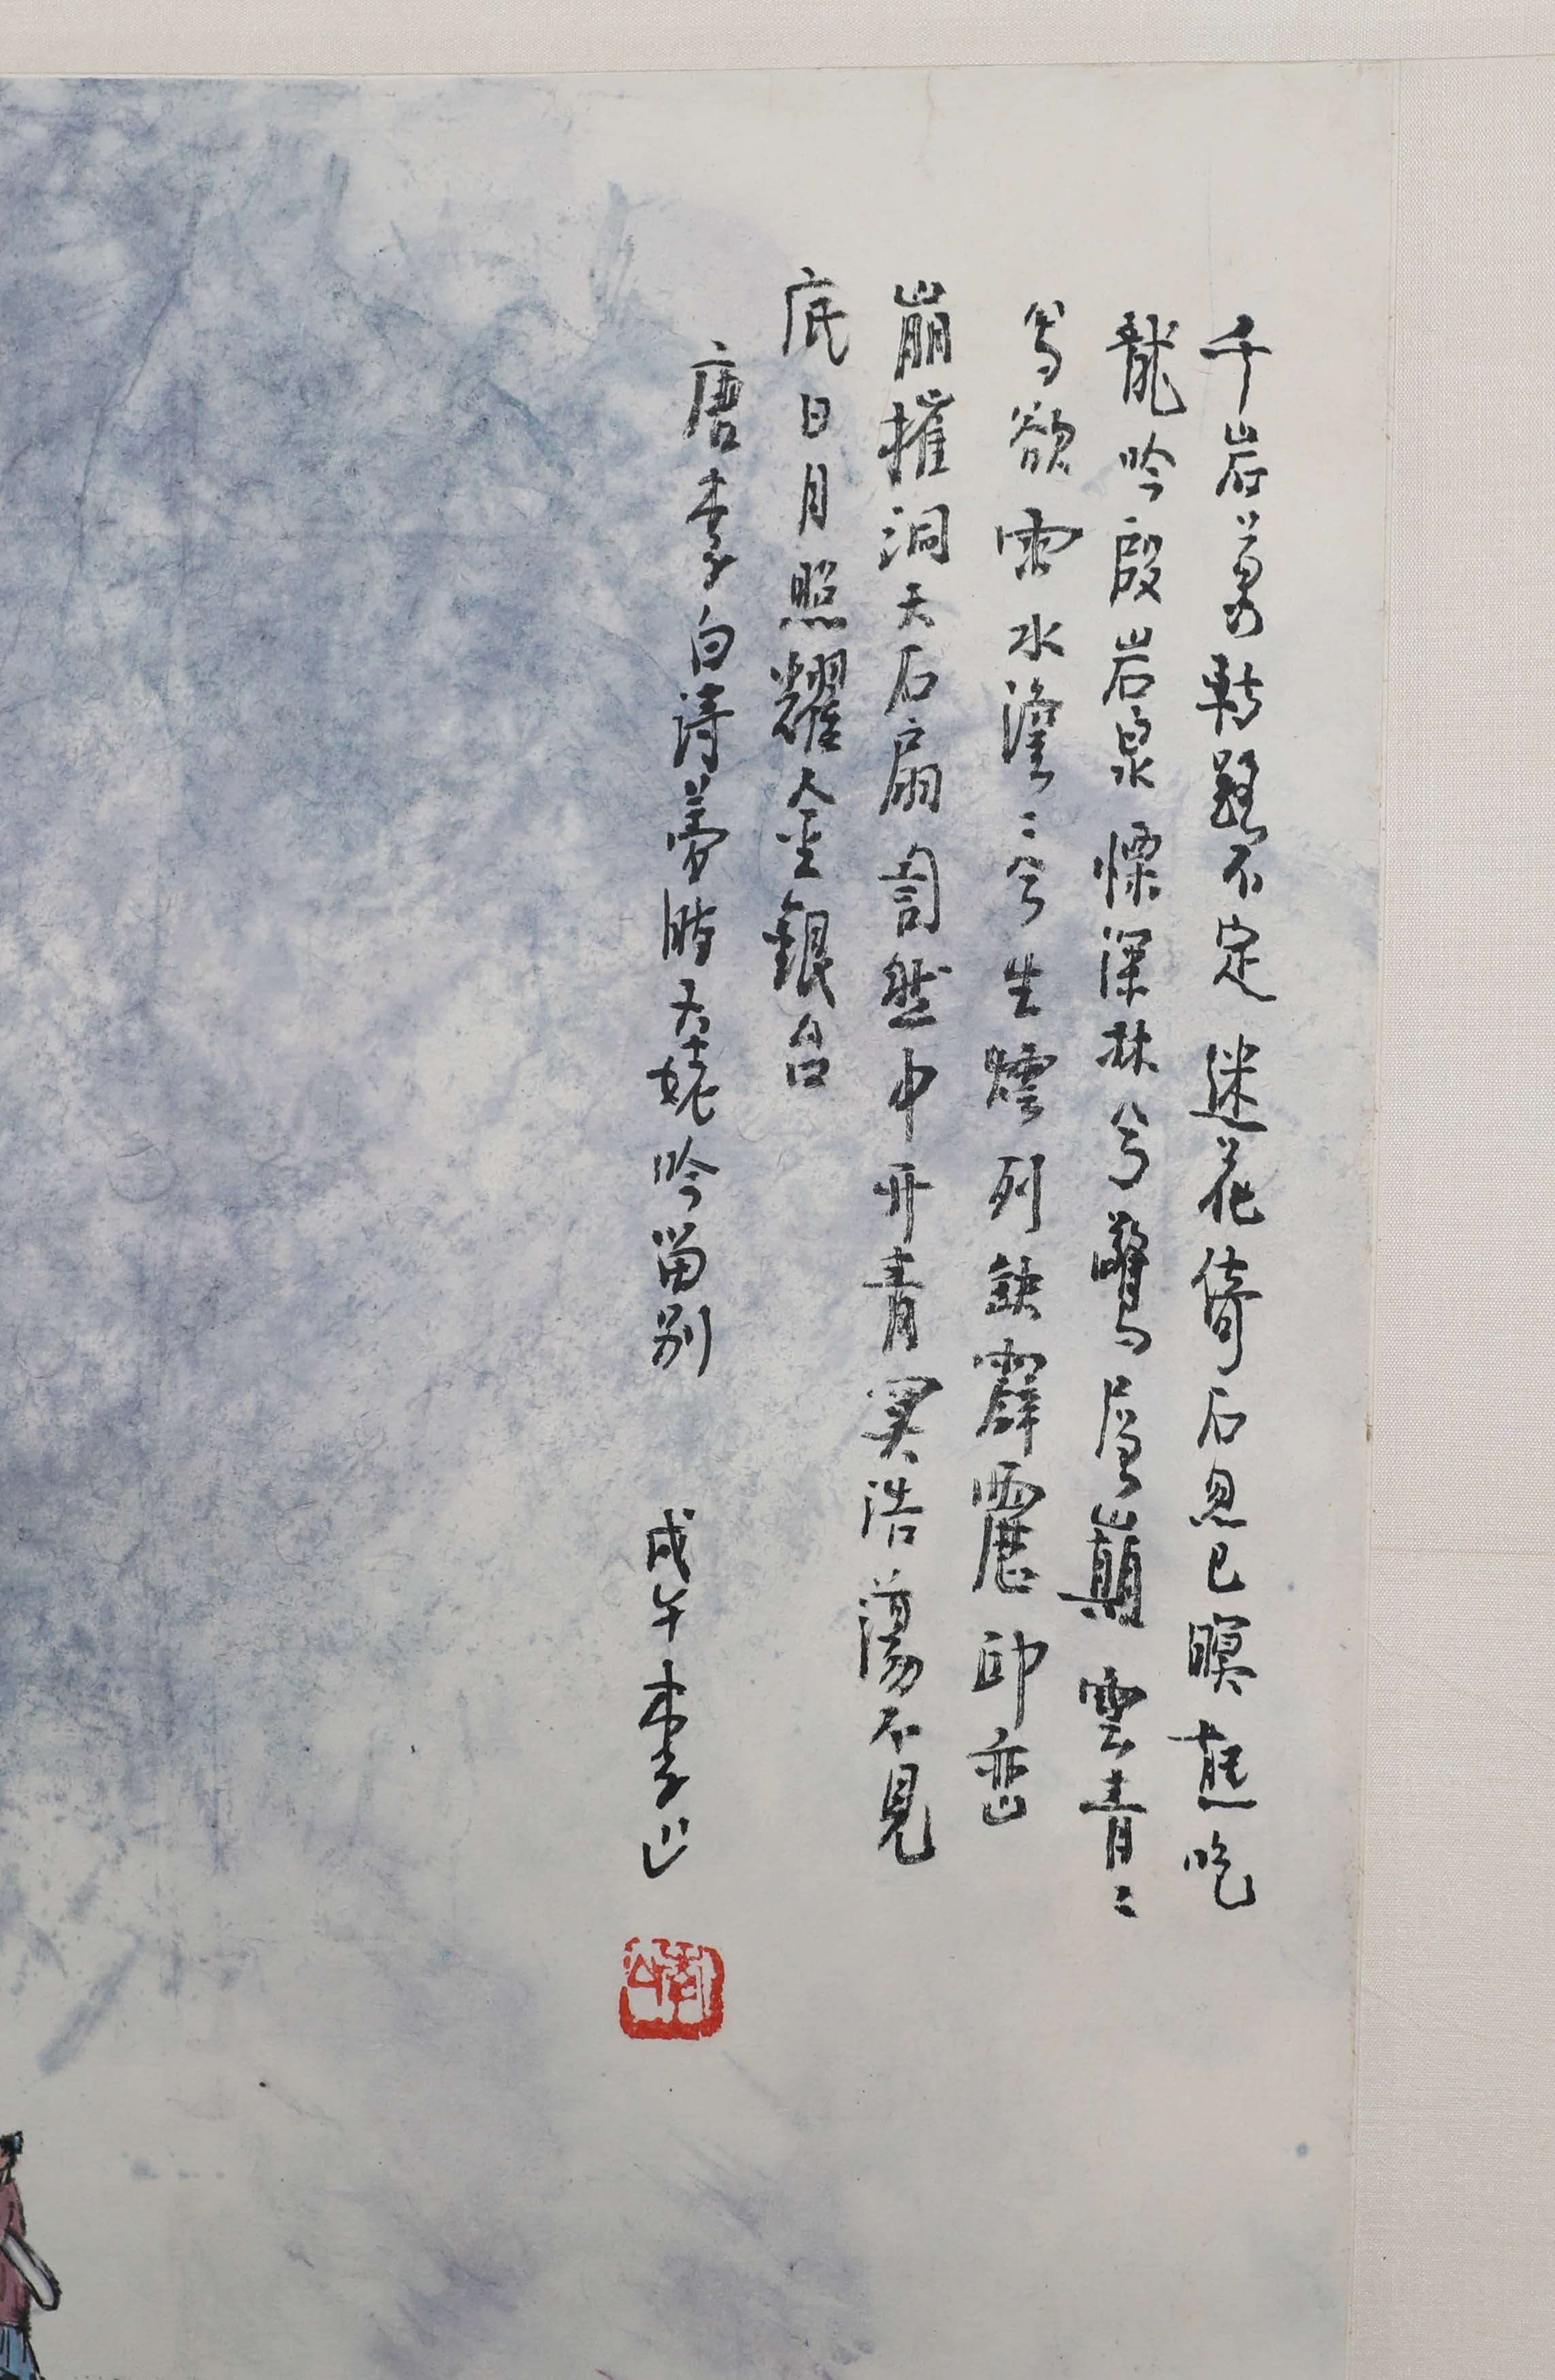 千岩萬轉路不定迷花倚石忽已暝熊咆
龍吟殷岩泉慄深林兮驚層巔雲青々
兮欲雨水澹々兮生煙列缺霹靂邱巒
崩摧洞天石扇訇然中开青冥浩蕩不見
底日月照耀金銀台
唐李白詩夢游天姥吟留别
戊午李山